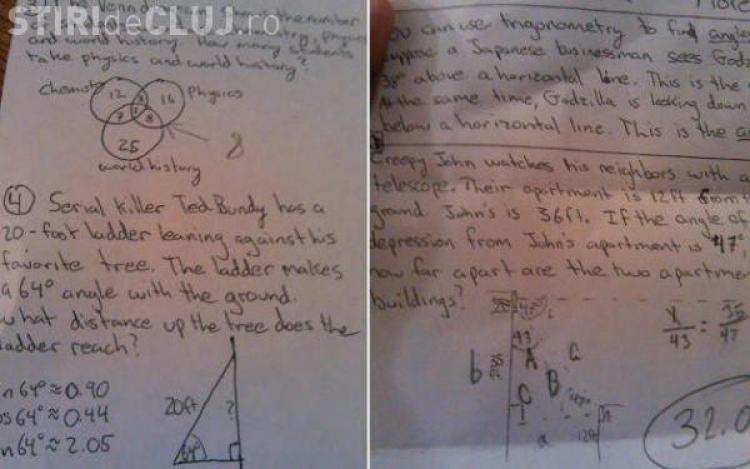 STIRIdeCLUJ.ro
is the number
and world history. How many students
take physics and world history?
chemist
physics
12
16
7
8
25
8
world history
4 Serial killer Ted Bundy has a
20-foot ladder leaning against his
favorite tree. The ladder makes
a 64° angle with the ground.
what distance up the tree does the
ladder reach?
n 64° ≈ 0.90
os 64° ≈ 0.44
n 64° ≈ 2.05
20ft
?
64°
ou can use trigonometry to find angle
uppose a Japanese businessman sees Godz
38° above a horizontal line. This is the
At the same time, Godzilla is looking down
below a horizontal line. This is the a
Creepy John watches his neighbors with a
telescope. Their apartment is 12ft from
ground. John's is 36ft. If the angle of
depression from John's apartment is 47°,
how far apart are the two apartme
buildings?
x/43 = 35/47
43°
A
b
C
B
a
12ft
32.0